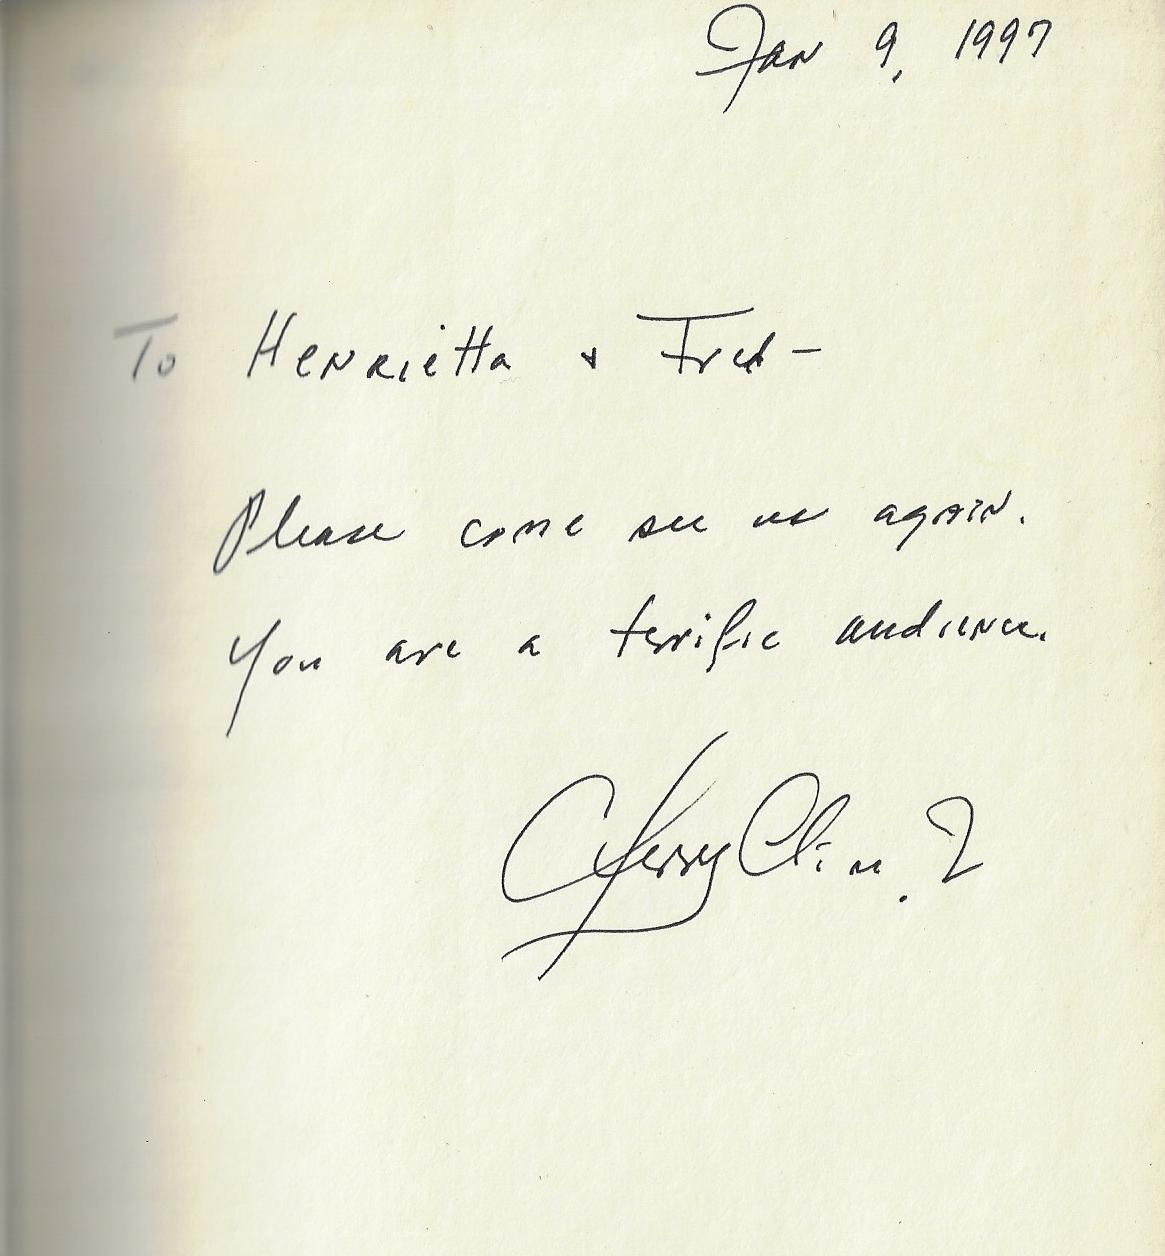 Jan 9, 1997
To Henrietta & Fred -
Please come see us again.
You are a terrific audience.